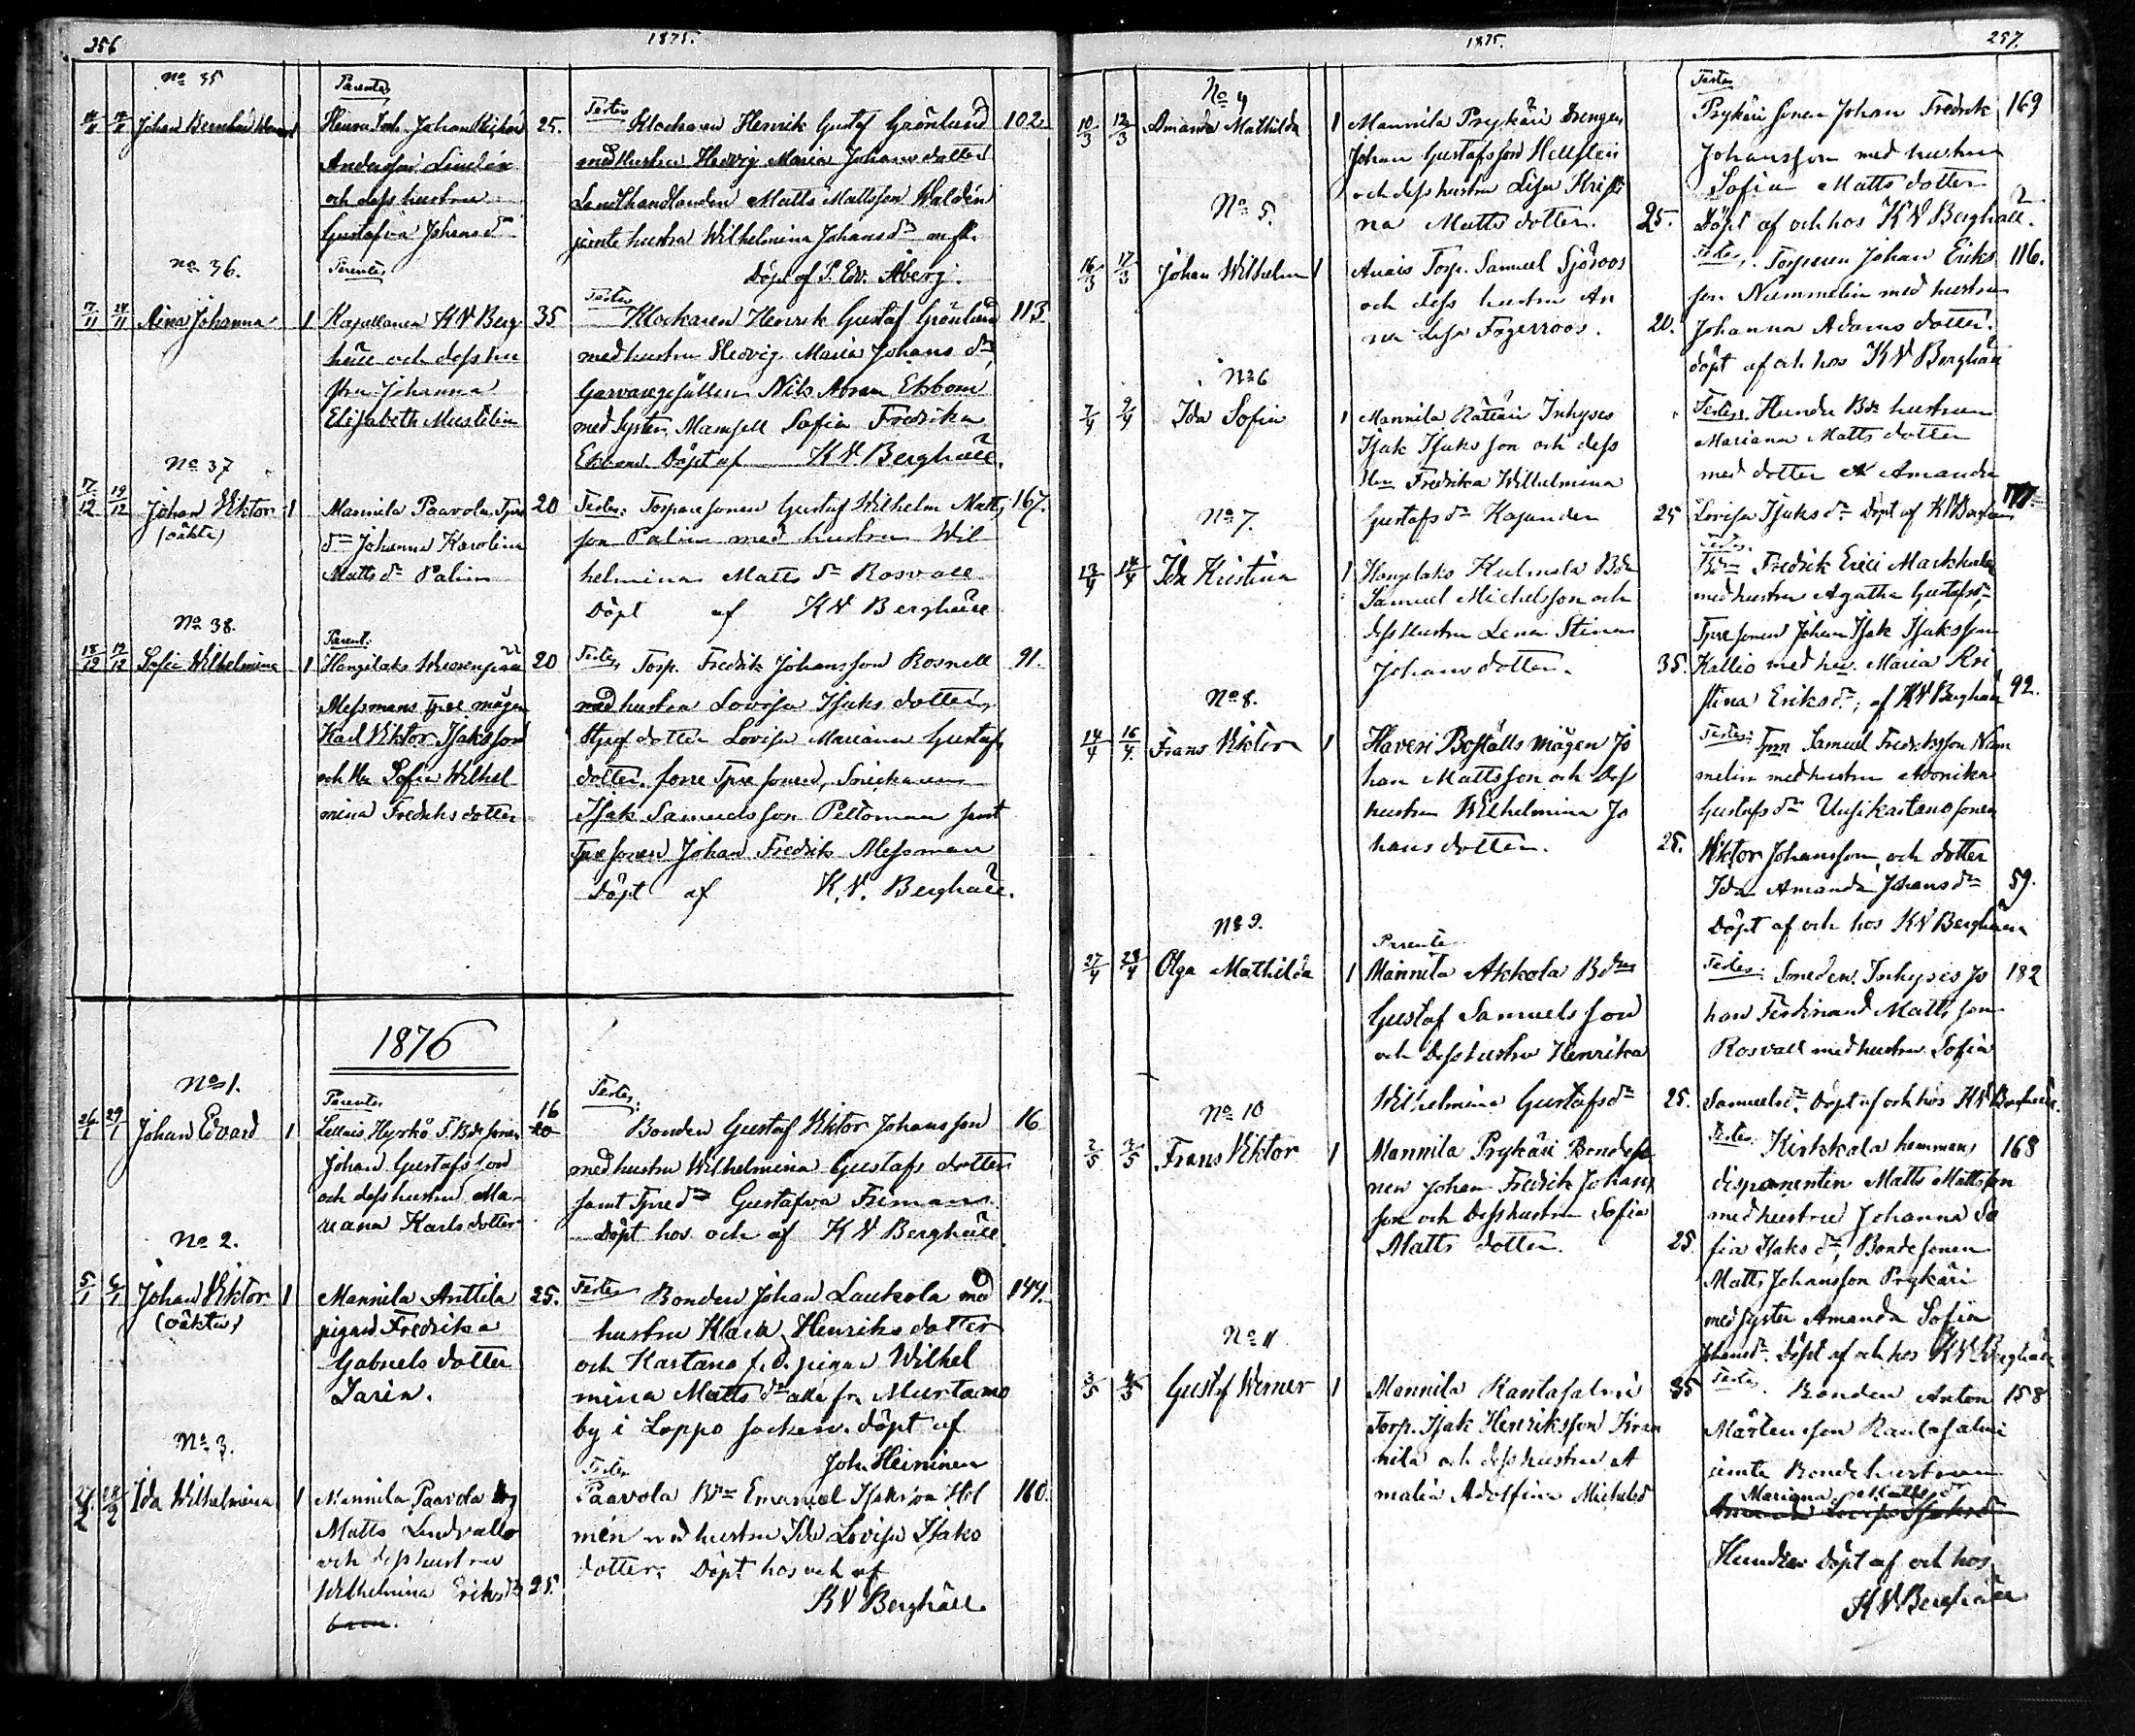 256
1875.
No 35
Parentes
Johan Bernhard
Johan
25.
Testes Klockaren Henrik Gustaf Grönlund
102.
Andersson Lindén
med hustru Hedvig Maria Johans dotter
och dess hustru
Landthandlanden Matts Mattsson Waldén
Gustafva Johans dr
jemte hustru Wilhelmina Johans dr m.fl.
Döpt af P. Edv. Åberg.
No 36.
Parentes
17/11
Aina Johanna
1
Kapellanen K V Berg
35
Testes
Klockaren Henrik Gustaf Grönlund
113
häll och dess hu
med hustru Hedvig Maria Johans dr
stru Johanna
Garfvaregesällen Nils Abram Ekbom
Elisabeth Mustelin
med Syster Mamsell Sofia Fredrika
Ekbom Döpt af K V Berghäll.
No 37
17/12
19/12
Johan Viktor
(oäkta)
1
Mannila Paavola Tpre
20
Testes: Torparesonen Gustaf Wilhelm Matts
167.
dr Johanna Karolina
son Palin med hustru Wil
Matts dr Palin
helmina Matts dr Rosvall
Döpt af K V Berghäll
No 38.
Parent:
18/12
19/12
Sofia Wilhelmina
1
Hongilaks
20
Testes Torp. Fredrik Johansson Rosnell
91.
Messmans Tpre mågen
med hustru Lovisa Isaks dotter,
Karl Viktor Isaksson
Styfdotter Lovisa Mariana Gustafs
och Hu Sofia Wilhel
dotter, Tpre sonen, Snickaren
mina Fredriks dotter
Isak Samuelsson Peltoman samt
Tpre sonen Johan Fredrik Messman
Döpt af K. V. Berghäll.
1876
No 1.
Parentes
26/1
29/1
Johan Edvard
1
Hyrkö
16
20
Testes:
Bonden Gustaf Viktor Johansson
16
Johan Gustafsson
med hustru Wilhelmina Gustafs dotter
och dess hustru Ma-
samt Tpre dr Gustafva Friman
riana Karls dotter
Döpt hos och af K V Berghäll.
No 2.
5/1
6/1
Johan Viktor
(oäkta)
1
Mannila Anttila
25.
Testes Bonden Johan Laukola med
144.
pigan Fredrika
hustru Klara Henriks dotter
Gabriels dotter
och Kartano f.d. pigan Wilhel
Jarin.
mina Matts dr alla fr. Murtamo
by i Loppo socken. Döpt af
Joh. Heininen
No 3.
Testes
Ida Wilhelmina
1
Mannila Paavola
Paavola Bdn Emanuel Isaksson Hol
160.
Matts Lindvall
mén med hustru Ida Lovisa Isaks
och dess hustru
dotter. Döpt hos och af
Wilhelmina Eriks dr
25.
K V Berghäll
1875.
257.
No 4
10/3
12/3
Amanda Mathilda
1
Mannila Prykäri Drengen
Testes
Prykäri sonen Johan Fredrik
169
Johan Gustafsson Hellsten
Johansson med hustru
och dess hustru Lisa Kristi
Sofia Matts dotter
na Matts dotter.
25.
Döpt af och hos K V Berghäll.
No 5.
16/3
17/3
Johan Wilhelm
1
Anais Torp. Samuel Sjöroos
Testes. Torparen Johan Eriks
116.
och dess hustru An
son Nummelin med hustru
na Lisa Fagerroos.
20.
Johanna Adams dotter.
Döpt af och hos K V Berghäll
No 6
7/4
9/4
Ida Sofia
1
Mannila Rättäri Inhyses
Testes. Hundre Bde hustrun
Isak Isaksson och dess
Mariana Matts dotter
Hu Fredrika Wilhelmina
med dotter Amanda
Gustafs dr Kajander
25
Lovisa Isaks dr Döpt af K V Berghäll
No 7.
13/4
14/4
Ida Kristina
1
Hongilaks Kulmala Bdn
Testes.
Bdn Fredrik Erici Markkula
Samuel Michelsson och
med hustru Agatha Gustafs dr
dess hustru Lena Stina
Tpre sonen Johan Isak Isaksson
Johans dotter.
35.
Kallio med hu. Maria Kri
stina Eriks dr; af K V Berghäll
92.
No 8.
14/4
16/4
Frans Viktor
1
Haveri Boställs mågen Jo
Testes: Tprn Samuel Fredriksson Num
han Mattsson och dess
melin med hustru Monika
hustru Wilhelmina Jo
Gustafs dr Uusikartano sonen
hans dotter.
25.
Viktor Johansson och dotter
Ida Amanda Johans dr
59.
Döpt af och hos K V Berghäll
No 9.
Parente
27/4
28/4
Olga Mathilda
1
Mannila Akkola Bden
Testes: Smeden Inhyses Jo
182
Gustaf Samuelsson
han Ferdinand Mattsson
och dess hustru Henrika
Rosvall med hustru Sofia
Wilhelmina Gustafs dr
25.
Samuels dr. Döpt af och hos K V Berghäll.
No 10
2/5
3/5
Frans Viktor
1
Mannila Prykäri Bondeso
Testes. Kirkkala hemmans
168
nen Johan Fredrik Johans
disponentin Matts Mattsson
son och dess hustru Sofia
med hustru Johanna So
Matts dotter.
25.
fia Isaks dr, Bondesonen
Matts Johansson Prykäri
med syster Amanda Sofia
Johans dr. Döpt af och hos K V Berghäll
No 11
3/5
4/5
Gustaf Werner
1
Mannila Rantasalmi
35
Testes. Bonden Anton
158
Torp. Isak Henriksson
Mårtensson Rantasalmi
nila och dess hustru A
jemte Bondehustrun
malia Adolfina Michelsd
Mariana Matts dr
Hundre Döpt af och hos
K V Berghäll